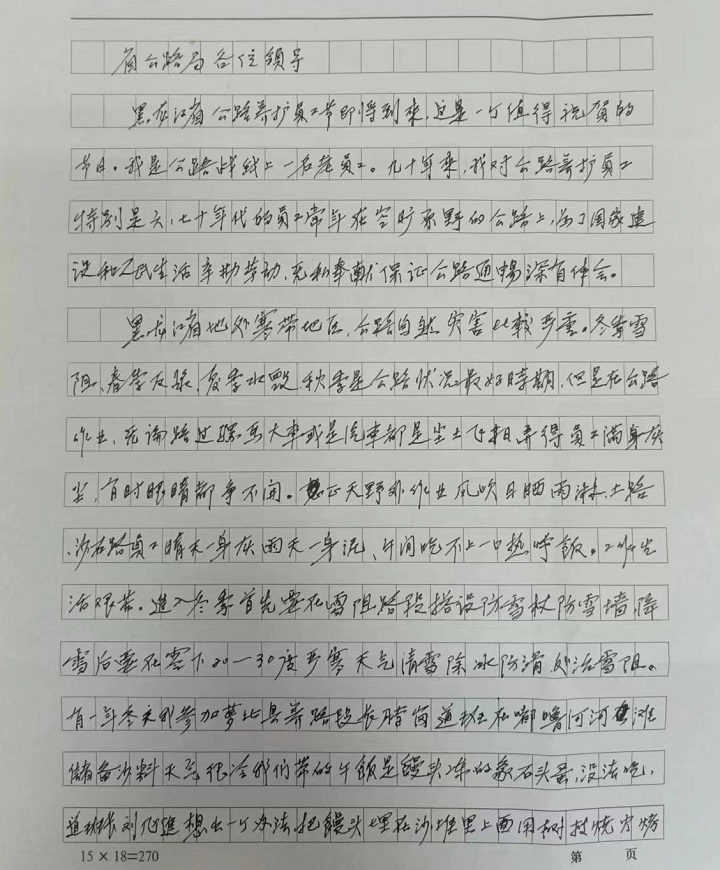 省公路局各位领导
黑龙江省公路养护员工节即将到来,这是一个值得祝贺的
节日。我是公路战线上一名老员工。几十年来,我对公路养护员工
特别是六,七十年代的员工常年在空旷原野的公路上,为了国家建
设和人民生活辛勤劳动,无私奉献保证公路通畅深有体会。
黑龙江省地处寒带地区,公路自然灾害比較严重。冬季雪
阻、春季反浆、夏季水毁,秋季是公路状况最好時期,但是在公路
作业,无论路过骡馬大車或是汽車都是尘土飞揚弄得員工滿身灰
尘,有时眼睛都争不開。正天野外作业風吹日晒雨淋,土路
、沙石路員工晴天一身灰雨天一身泥、午间吃不上一口热呼飯。工作生
活艰苦。進入冬季首先要在雪阻路段搭设防雪杖防雪墙,降
雪后要在零下20—30度严寒天气清雪除冰防滑,处治雪阻。
有一年冬天我參加蘿北县养路段长脖崗道班在嘟嚕河河灘
儲备沙料天气很冷我们带的午飯是饅头凍的象石头蛋,没法吃,
道班长刘化進想出一个办法把饅头埋在沙堆里上面用树枝燒火烤
15 × 18=270 第 页